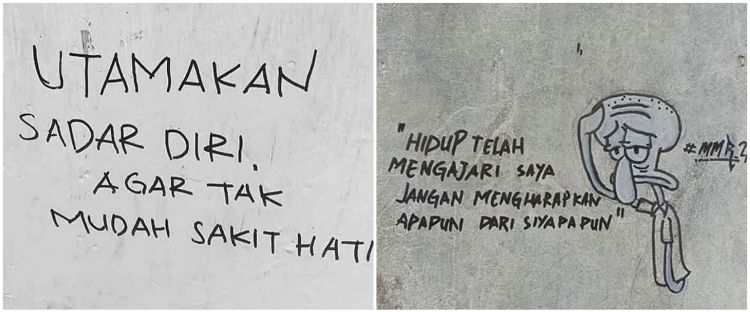 UTAMAKAN
SADAR DIRI.
AGAR TAK
MUDAH SAKIT HATI
"HIDUP TELAH
MENGAJARI SAYA
JANGAN MENGHARAPKAN
APAPUN DARI SIYAPAPUN"